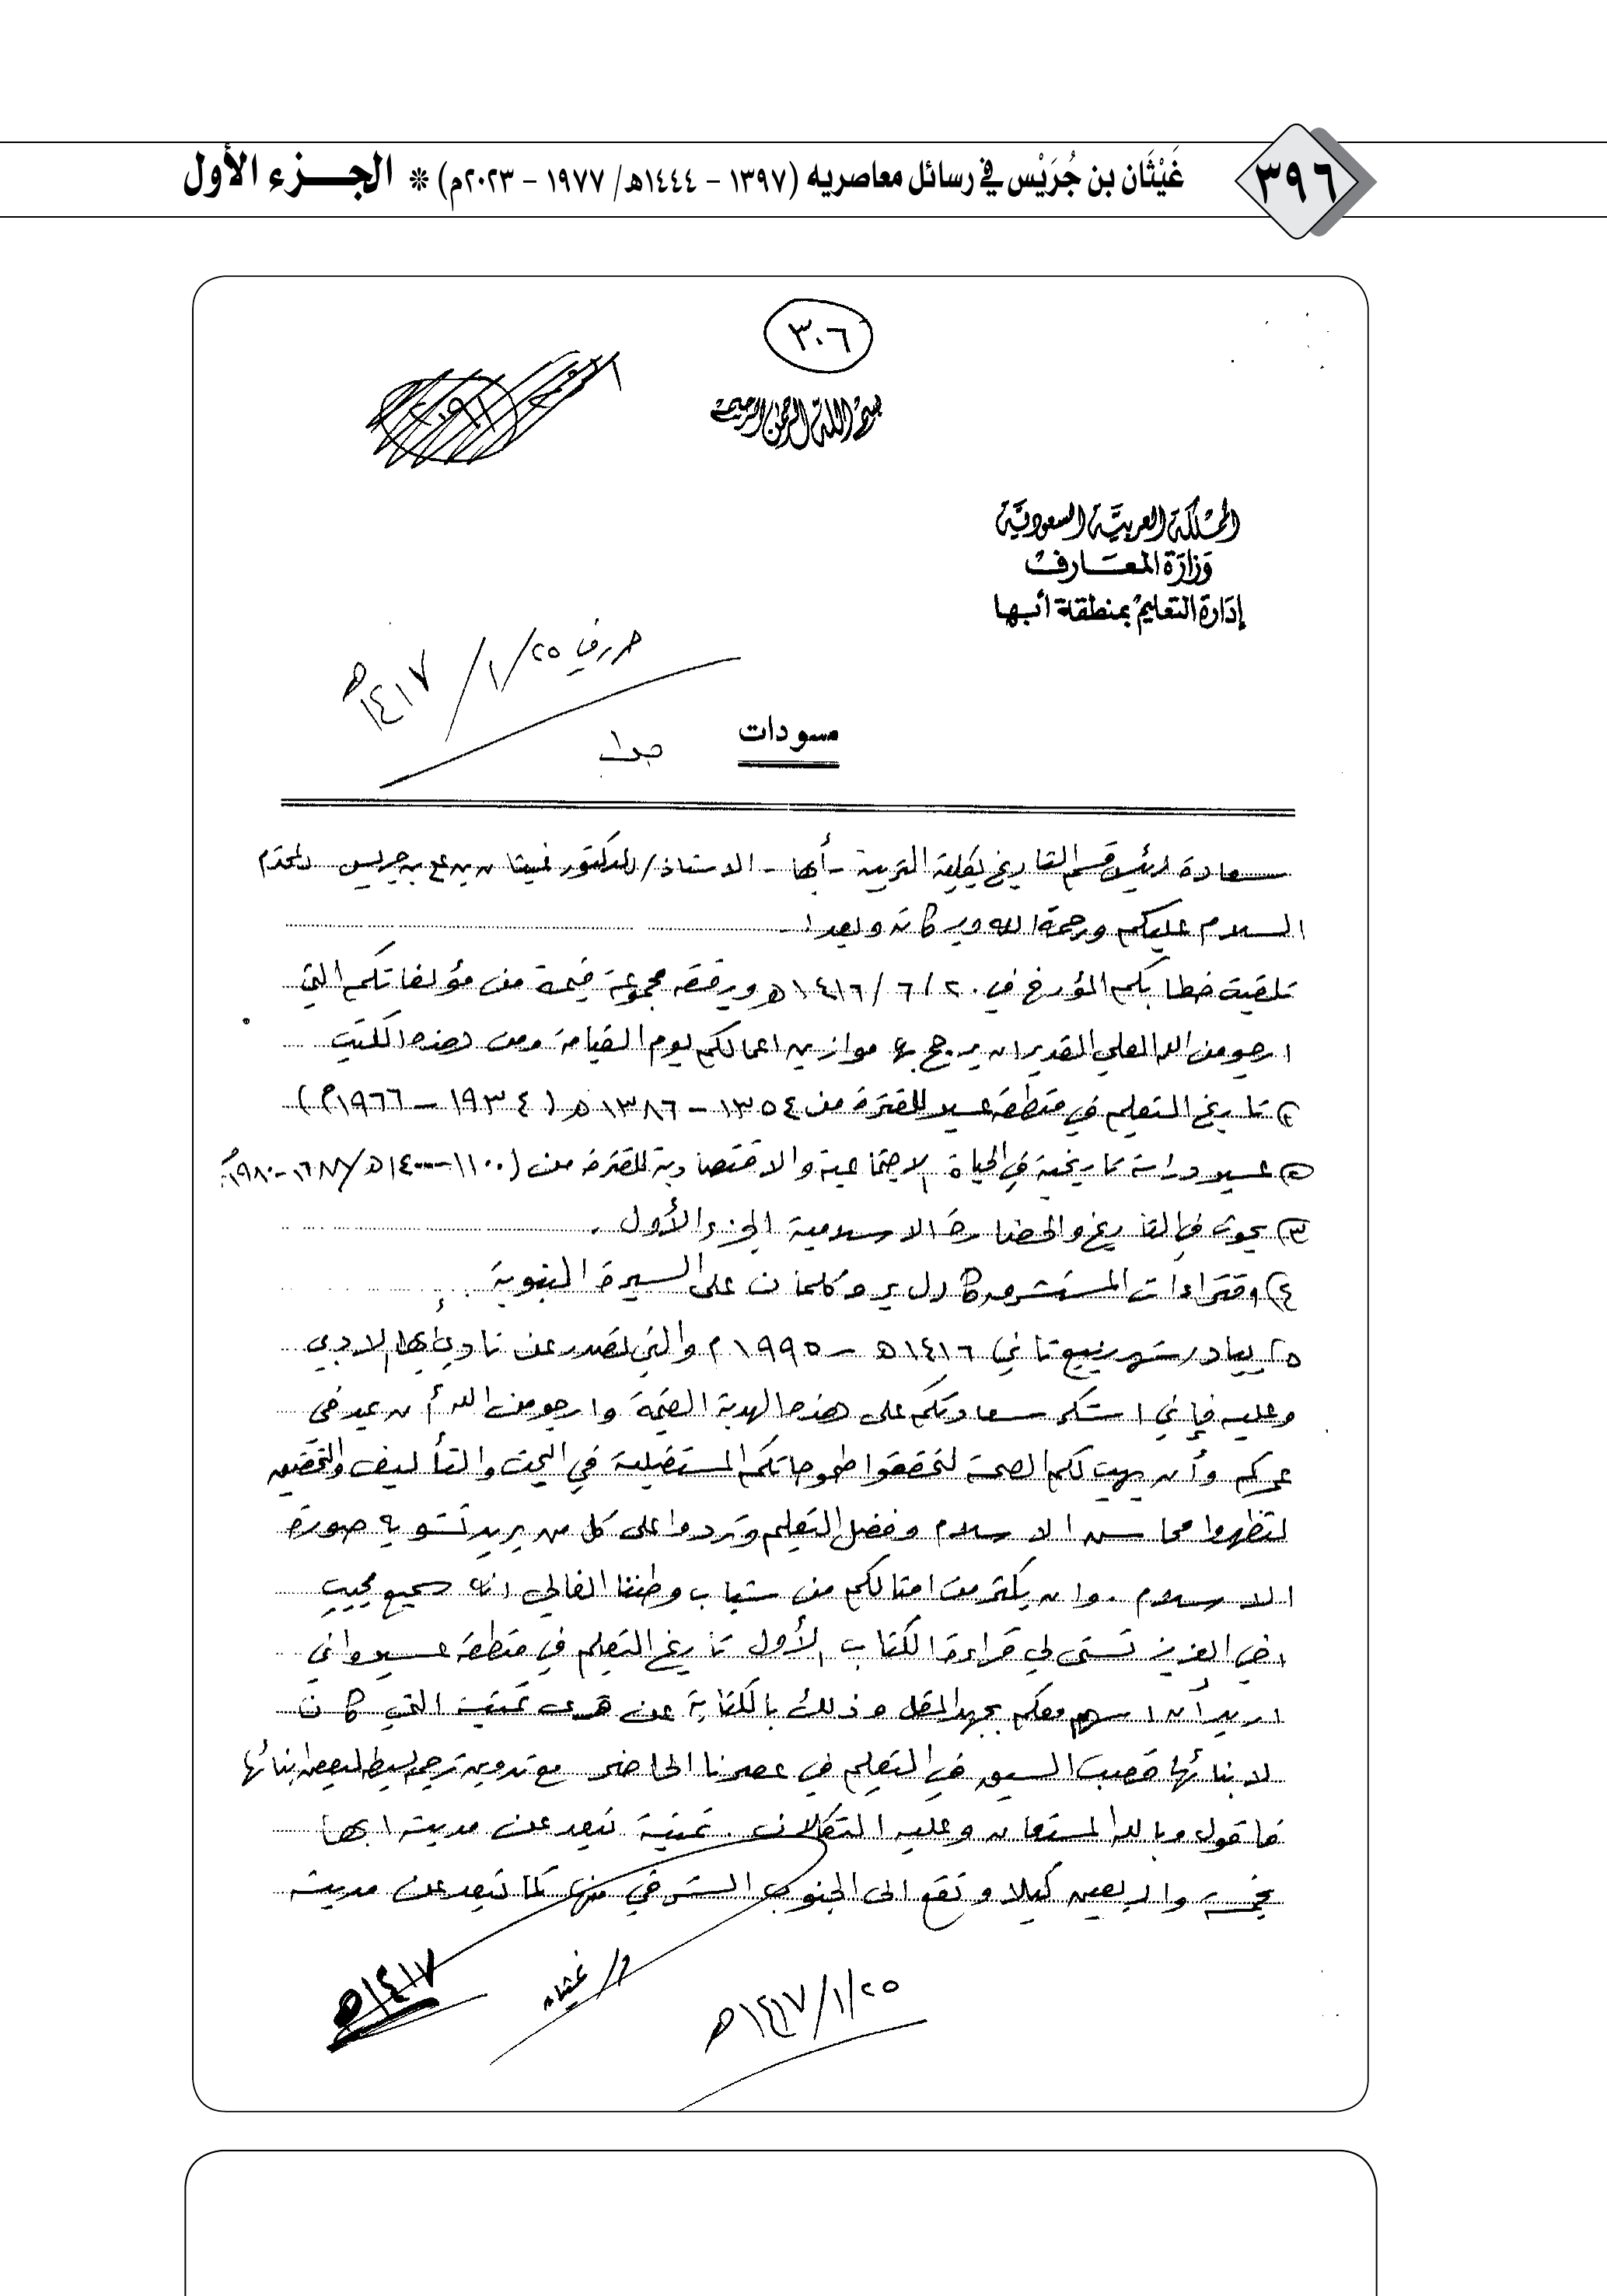 ٣٩٦
غَيْثَان بن جُرَيْس في رسائل معاصريه (١٣٩٧ - ١٤٤٤هـ/ ١٩٧٧ - ٢٠٢٣م) * الجـــزء الأول
٣٠٦
بسم الله الرحمن الرحيم
المملكة العربية السعودية
وزارة المعارف
إدارة التعليم بمنطقة أبها
حرر في ٢٥/١/١٤١٧هـ
مسودات
سعادة رئيس قسم التاريخ بكلية التربية - أبها - الاستاذ/ الدكتور غيثان بن علي بن جريس المحترم
السلام عليكم ورحمة الله وبركاته وبعد :-
تلقيت خطابكم المؤرخ في ٢٠/٦/١٤١٦هـ وبرفقه مجموعة قيمة من مؤلفاتكم التي
ارجو من الله العلي القدير ان يرجح بها موازين اعمالكم يوم القيامة ومن هذه الكتب
١) تاريخ التعليم في منطقة عسير للفترة من ١٣٥٤ - ١٣٨٦هـ (١٩٣٤ - ١٩٦٦م)
٢) عسير دراسة تاريخية في الحياة الاجتماعية والاقتصادية للفترة من (١١٠٠-١٤٠٠هـ/١٦٨٨-١٩٨٠م)
٣) بحوث في التاريخ والحضارة الاسلامية الجزء الأول .
٤) وافتراءات المستشرق كارل بروكلمان على السيرة النبوية .
٥) بيادر شهر ربيع ثاني ١٤١٦هـ - ١٩٩٥م والتي تصدر عن نادي أبها الادبي
وعليه فإني اشكر سعادتكم على هذه الهدية القيمة وارجو من الله أن يمد في
عمركم وأن يهب لكم الصحة لتحققوا طموحاتكم المستقبلية في البحث والتأليف والتحقيق
لتظهروا محاسن الاسلام وفضل التعليم وتردوا على كل من يريد تشويه صورة
الاسلام . وان يكثر من امثالكم من شباب وطننا الغالي انه سميع مجيب
اخي العزيز تسنى لي قراءة الكتاب الأول تاريخ التعليم في منطقة عسير واني
اريد أن اسهم معكم بجهد المقل وذلك بالكتابة عن قرى تمنية التي كان
لابنائها قصب السبق في التعليم في عصرنا الحاضر مع تدوين ترجمة بسيطة لبعض ابنائها
فاقول وبالله المستعان وعليه التكلان . تمنية تبعد عن مدينة ابها
بخمسة واربعين كيلا وتقع الى الجنوب الشرقي منها كما تبعد عن مدينة
د/ غيثان
١٤١٧هـ
٢٥/١/١٤١٧هـ